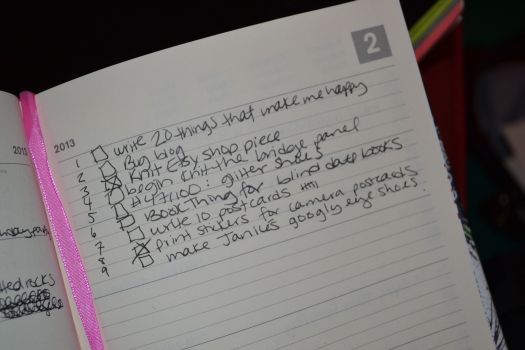 2
2013
2013
1 write 20 things that make me happy
2 Bug blog
3 Knit Etsy shop piece
4 begin knit the bridge panel
5 #47/100: glitter shoes
6 Book Thing for blind date books
7 write 10 postcards
8 print stickers for camera postcards
9 make Janine's googly eye shoes.
rocks